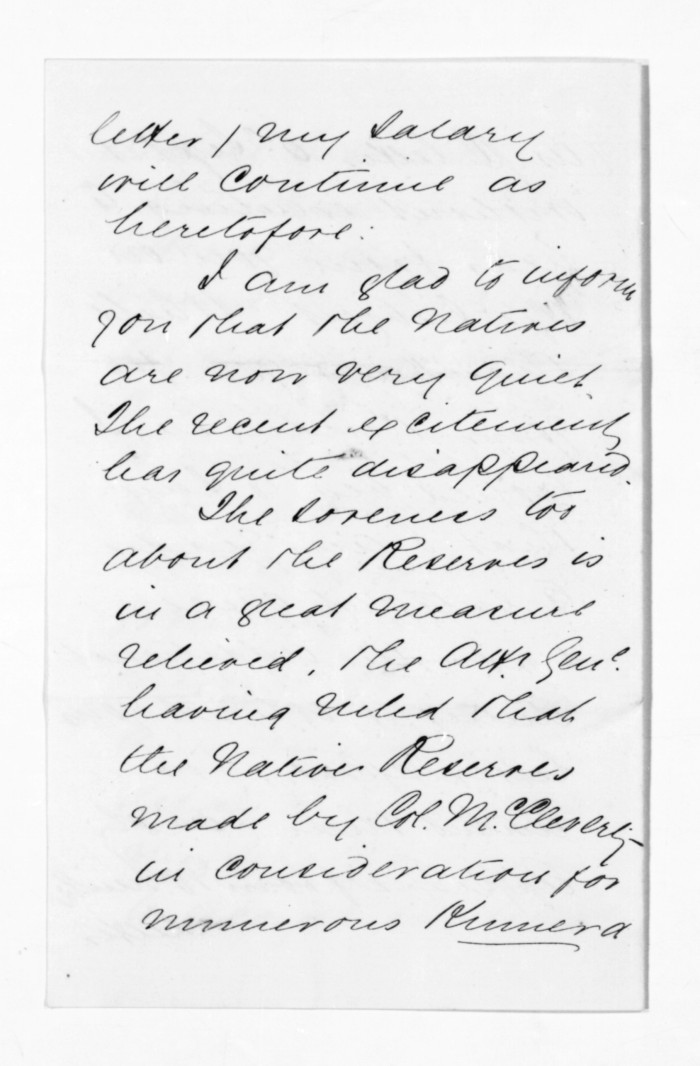 letter / my Salary
will Continue as
heretofore:
I am glad to inform
you that the Natives
are now very quiet
The recent excitement
has quite disappeared.
The soreness too
about the Reserves is
in a great measure
relieved, the Atty. Genl.
having ruled that
the Native Reserves
made by Col. McCleverty
in consideration for
numerous Kumera